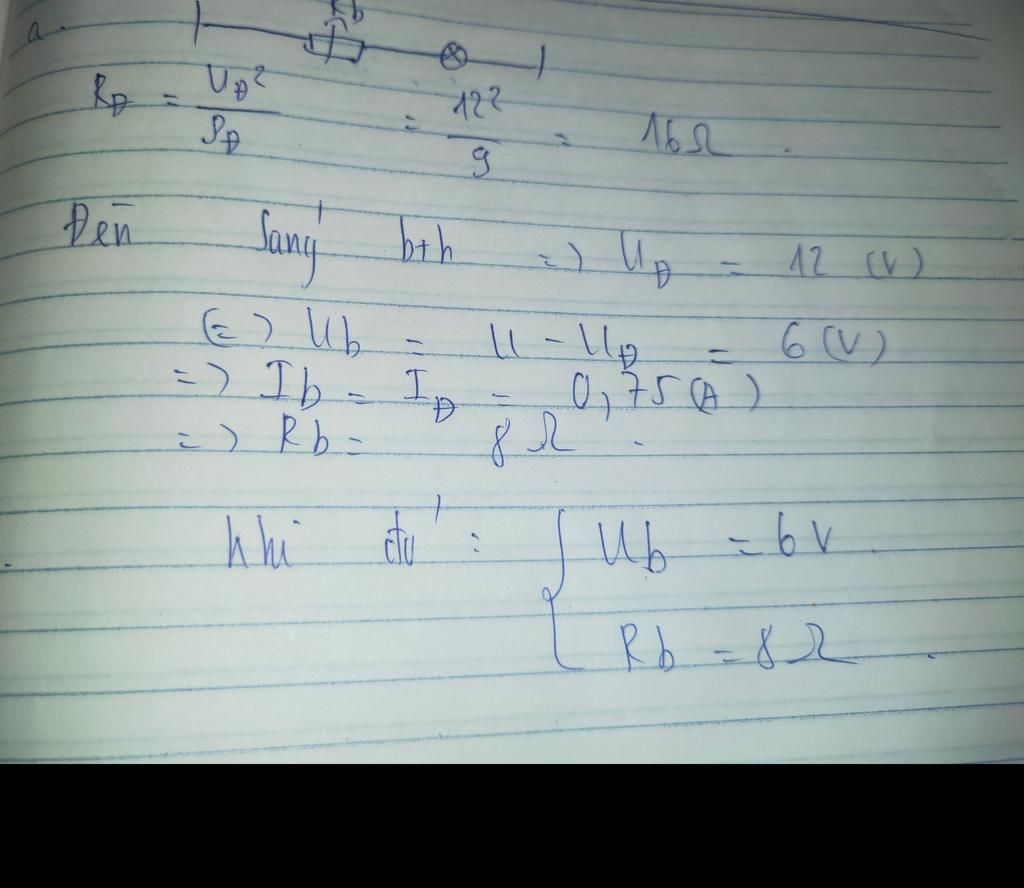 a. Rb
R_Đ = U_Đ² / P_Đ = 12² / 9 = 16Ω.
Đèn sáng bth => U_Đ = 12 (V)
(=) Ub = U - U_Đ = 6 (V)
=> Ib = I_Đ = 0,75 (A)
=> Rb = 8 Ω.
khi đó : { Ub = 6V.
Rb = 8Ω.